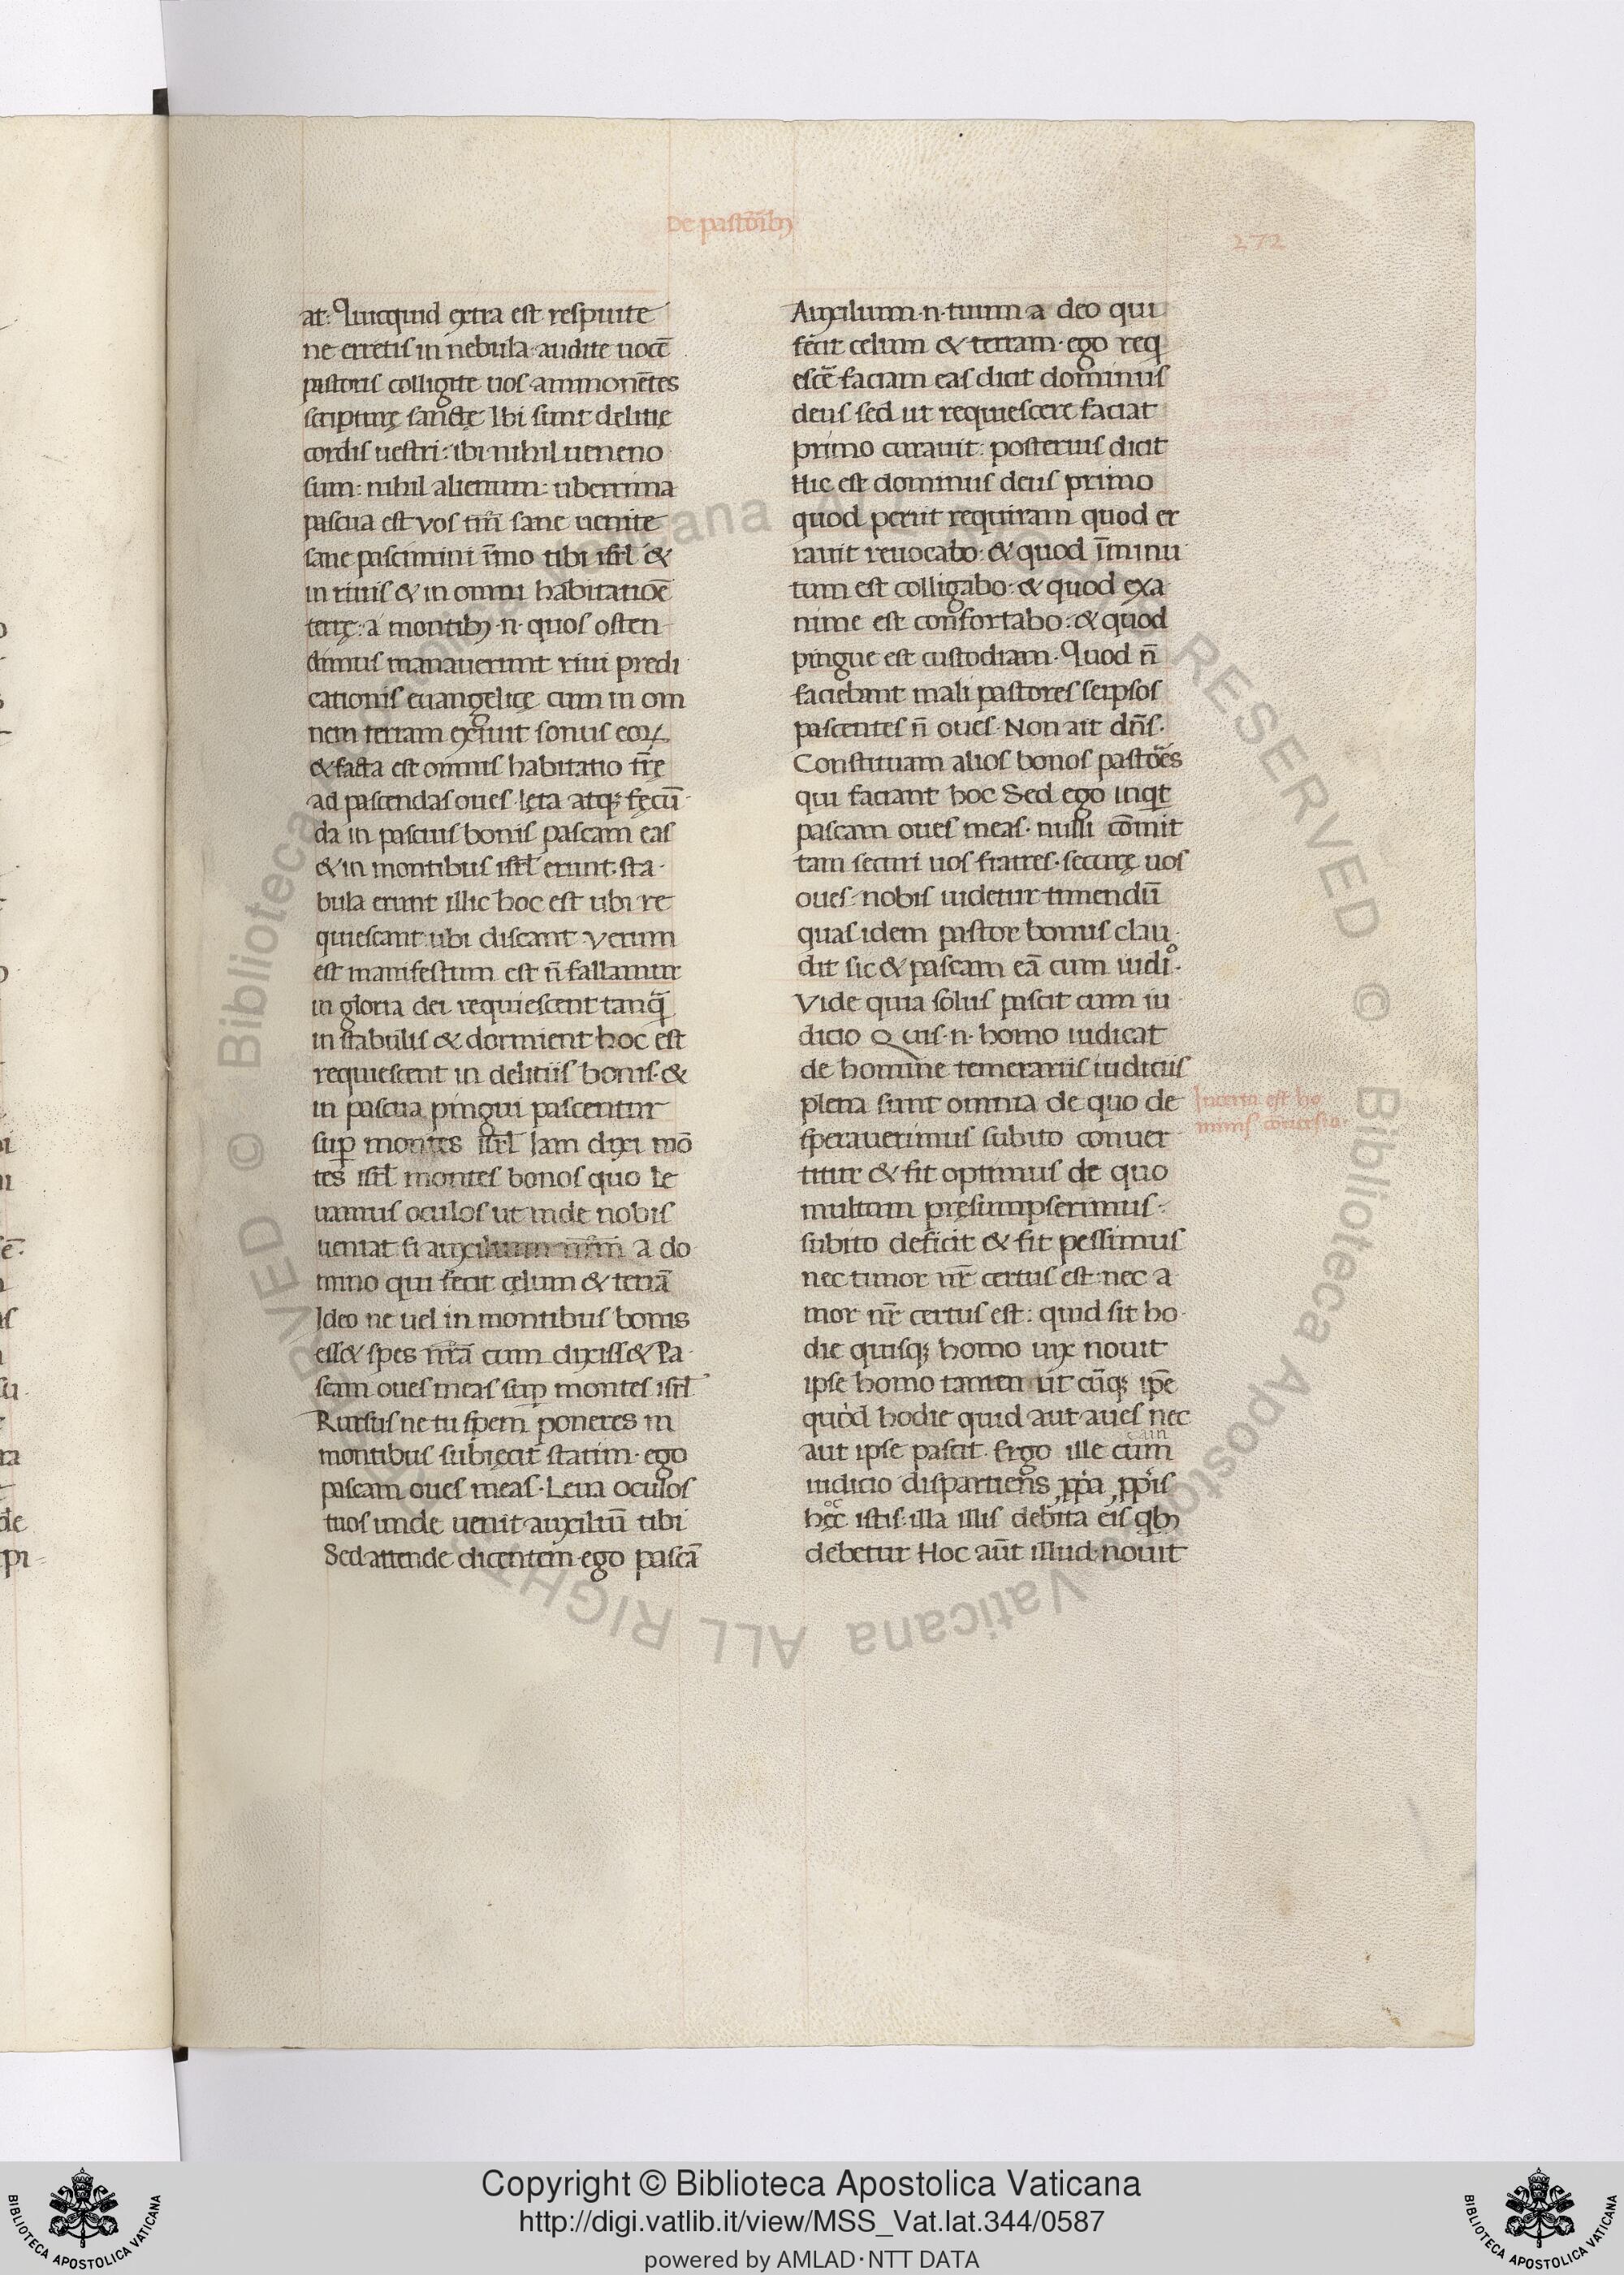 De pastoribȝ
272
at: Quicquid extra est respuite
ne erretis in nebula audite uocē
pastoris colligite uos ammonētes
scripturę sanctę Ibi sunt delitię
cordis uestri: ibi nihil ueneno
sum: nihil alienum: uberrima
pascua est vos tm̄ sane uenite
sane pascimini īmo tibi isrl̄ &
in riuis & in omni habitatiōe
terrę: a montibȝ ·n· quos osten
dimus manauerunt riui predi
cationis euangelicę cum in om
nem terram exiuit sonus eoꝝ
& facta est omnis habitatio tr̄ę
ad pascendas oues lęta atqȝ fęcū
da in pascuis bonis pascam eas
& in montibus isrl̄ erunt· sta
bula erunt illic hoc est ubi re
quiescant ubi discant verum
est manifestum est n̄ fallamur
in gloria dei requiescent tanq̄
in stabulis & dormient hoc est
requiescent in delitiis bonis· &
in pascua pingui pascentur
suꝑ montes isrl̄ Iam dixi mō
tes isrl̄ montes bonos quo le
uamus oculos ut inde nobis
ueniat si auxilium nr̄m a do
mino qui fecit cęlum & terrā
Ideo ne uel in montibus bonis
ess& spes nr̄a cum dixiss& Pa
scam oues meas suꝑ montes isrl̄
Rursus ne tu spem poneres in
montibus subiecit statim· ego
pascam oues meas· Leua oculos
tuos unde uenit auxiliū tibi
Sed attende dicentem· ego pascā
Auxilium ·n· tuum a deo qui
fecit celum & terram· ego req
escē faciam eas dicit dominus
deus sed ut requiescere faciat
primo curauit: posterius dicit
Hic est dominus deus primo
quod periit requiram quod er
rauit reuocabo· & quod īminu
tum est colligabo: & quod exa
nime est confortabo: & quod
pingue est custodiam· Quod n̄
faciebant mali pastores seipsos
pascentes n̄ oues· Non ait dn̄s·
Constituam alios bonos pastōes
qui faciant hoc Sed ego inqt
pascam oues meas· nulli cōmit
tam securi uos fratres· securę uos
oues: nobis uidetur timendū
quas idem pastor bonus clau
dit sic & pascam eā cum iudiº·
Vide quia solus pascit cum iu
dicio Quis ·n· homo iudicat
de homine temerariis iudiciis
plena sunt omnia de quo de
sperauerimus subito conuer
titur & fit optimus de quo
multum pręsumpserimus:
subito deficit & fit pessimus
nec timor nr̄ certus est: nec a
mor nr̄ certus est: quid sit ho
die quisqȝ homo uix nouit
ipse homo tamen ut cūqȝ ipē
quod hodie quid aut aues nec
aut ipse pascit· Ergo ille cum
iudicio dispartiens ꝓpa ꝓpis
hęc istis: illa illis debita eis qbȝ
debetur Hoc aūt illud nouit
Incerta est ho
minis